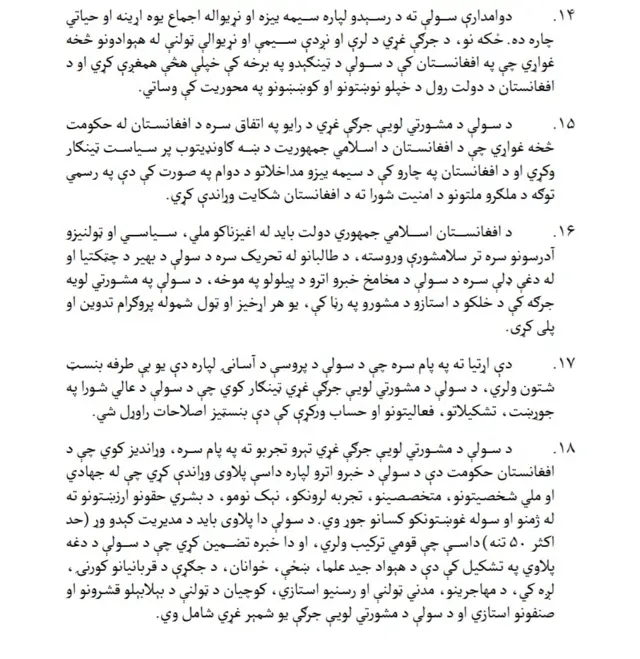 ۱۴. دوامدارې سـولې ته د رسـېدو لپاره سـيمه ييزه او نړيواله اجماع يوه اړينه او حياتي
چاره ده. ځکه نو، د جرګې غړي د لرې او نږدې سـيمې او نړيوالې ټولنې له هېوادونو څخه
غواړي چې په افغانسـتان کې د سـولې د ټينګېدو په برخه کې خپلې هڅې همغږې کړي او د
افغانستان د دولت رول د خپلو نوښتونو او کوښښونو په محوريت کې وساتي.
۱۵. د سولې د مشورتي لويې جرګې غړي د رايو په اتفاق سره د افغانستان له حکومت
څخه غواړي چې د افغانسـتان د اسـلامي جمهوريت د ښـه ګاونډيتوب پر سـياست ټينګار
وکړي او د افغانستان په چارو کې د سيمه ييزو مداخلاتو د دوام په صورت کې دې په رسمي
توګه د ملګرو ملتونو د امنيت شورا ته د افغانستان شکايت وړاندې کړي.
۱۶. د افغانسـتان اسـلامي جمهوري دولت بايد له اغېزناکو ملي، سـياسـي او ټولنيزو
آدرسونو سره تر سلامشورې وروسته، د طالبانو له تحريک سره د سولې د بهير د چټکتيا او
له دغې ډلې سره د سـولې د مخامخ خبرو اترو د پيلولو په موخه، د سـولې په مشورتي لويه
جرګه کې د خلکو د استازو د مشورو په رڼا کې، يو هر اړخيز او ټول شموله پروګرام تدوين او
پلی کړی.
۱۷. دې اړتيا ته په پام سره چې د سولې د پروسې د آسانۍ لپاره دې يو بې طرفه بنسټ
شتون ولري، د سولې د مشورتي لويې جرګې غړي ټينګار کوي چې د سولې د عالي شورا په
جوړښت، تشکيلاتو، فعاليتونو او حساب ورکړې کې دې بنسټيز اصلاحات راوړل شي.
۱۸. د سولې د مشورتي لويې جرګې غړي تېرو تجربو ته په پام سره، وړانديز کوي چې د
افغانستان حکومت دې د سولې د خبرو اترو لپاره داسې پلاوی وړاندې کړي چې له جهادي
او ملي شخصيتونو، متخصصينو، تجربه لرونکو، نېک نومو، د بشري حقونو ارزښتونو ته
له ژمنو او سوله غوښتونکو کسانو جوړ وي. د سولې دا پلاوی بايد د مديريت کېدو وړ (حد
اکثر ۵۰ تنه) داسـې چې قومي ترکيب ولري، او دا خبره تضـمين کړي چې د سـولې د دغه
پلاوي په تشکيل کې دې د هېواد جيد علما، ښځې، ځوانان، د جګړې د قربانيانو کورنۍ،
لږه کي، د مهاجرينو، مدني ټولنې او رسنيو استازي، کوچيان د ټولنې د بېلابېلو قشرونو او
صنفونو استازي او د سولې د مشورتي لويې جرګې يو شمېر غړي شامل وي.